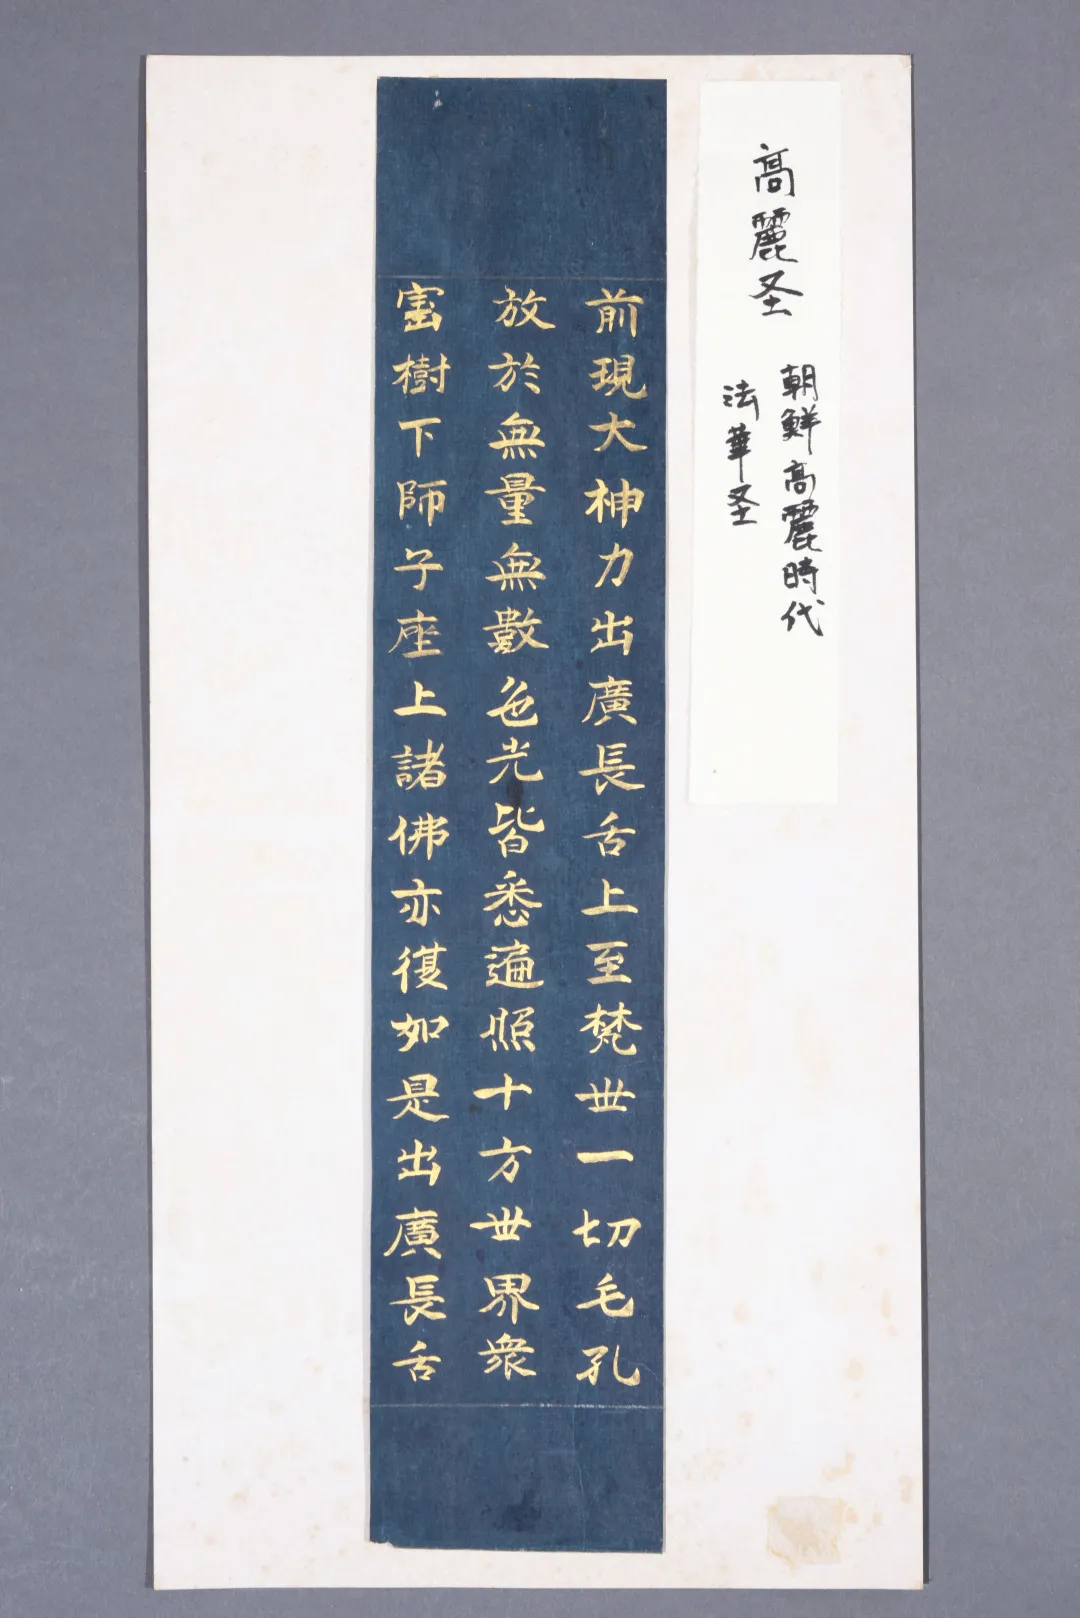 高麗圣
朝鮮高麗時代
法華圣
前現大神力出廣長舌上至梵世一切毛孔
放於無量無數色光皆悉遍照十方世界衆
寳樹下師子座上諸佛亦復如是出廣長舌